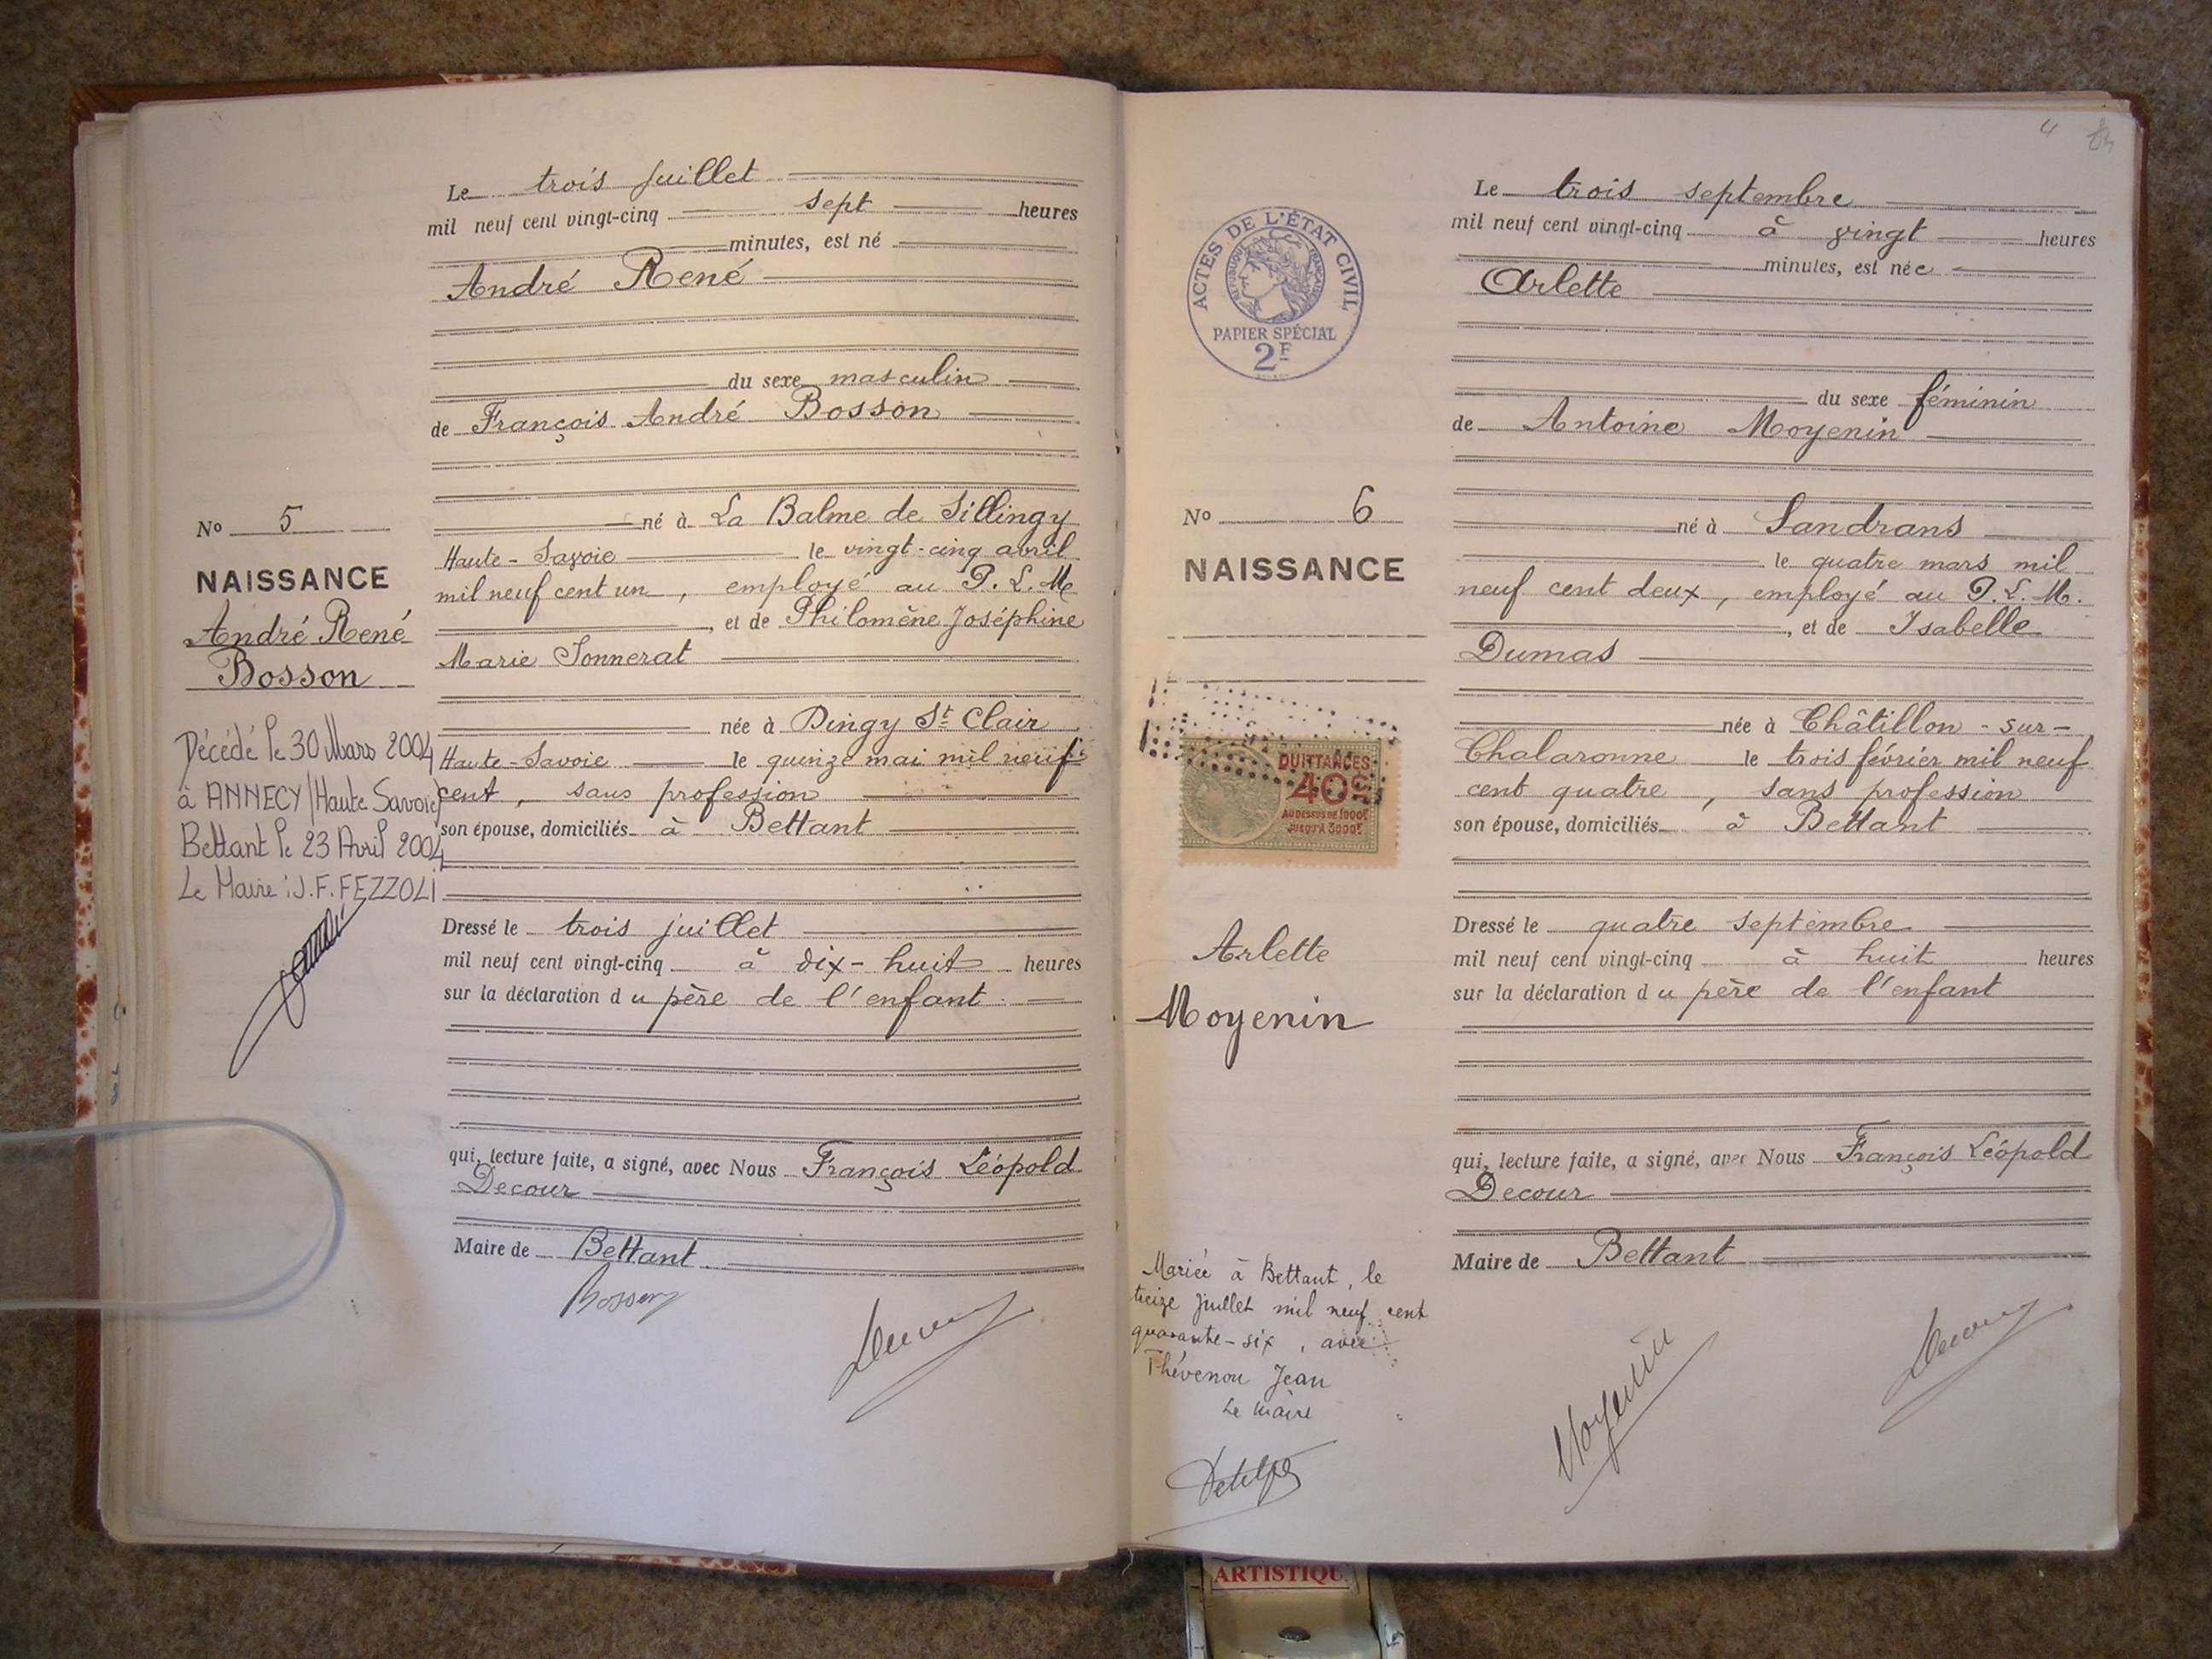 Le trois juillet
mil neuf cent vingt-cinq sept heures
minutes, est né
André René
du sexe masculin
de François André Bosson
né à La Balme de Sillingy
Haute-Savoie le vingt-cinq avril
mil neuf cent un, employé au P.L.M
, et de Philomène Joséphine
Marie Sonnerat
née à Dingy St Clair
Haute-Savoie le quinze mai mil neuf
cent, sans profession
son épouse, domiciliés à Bettant
Dressé le trois juillet
mil neuf cent vingt-cinq à dix-huit heures
sur la déclaration du père de l'enfant.
qui, lecture faite, a signé, avec Nous François Léopold
Decour
Maire de Bettant.
Bosson
No 5
NAISSANCE
André René
Bosson
Décédé le 30 Mars 2004
à ANNECY (Haute Savoie)
Bettant le 23 Avril 2004
Le Maire : J.F. FEZZOLI
4
Le trois septembre
mil neuf cent vingt-cinq à vingt heures
minutes, est née
Arlette
du sexe féminin
de Antoine Moyenin
né à Sandrans
le quatre mars mil
neuf cent deux, employé au P.L.M.
, et de Isabelle
Dumas
née à Châtillon-sur-
Chalaronne le trois février mil neuf
cent quatre, sans profession
son épouse, domiciliés à Bettant
Dressé le quatre septembre
mil neuf cent vingt-cinq à huit heures
sur la déclaration du père de l'enfant
qui, lecture faite, a signé, avec Nous François Léopold
Decour
Maire de Bettant
Moyenin
Decour
ACTES DE L'ÉTAT CIVIL
RÉPUBLIQUE FRANÇAISE
PAPIER SPÉCIAL
2F
No 6
NAISSANCE
QUITTANCES
40c
AU DESSUS DE 1000F
JUSQU'A 3000F
Arlette
Moyenin
Mariée à Bettant, le
treize juillet mil neuf cent
quarante-six, avec
Thévenon Jean
Le maire
ARTISTIQU